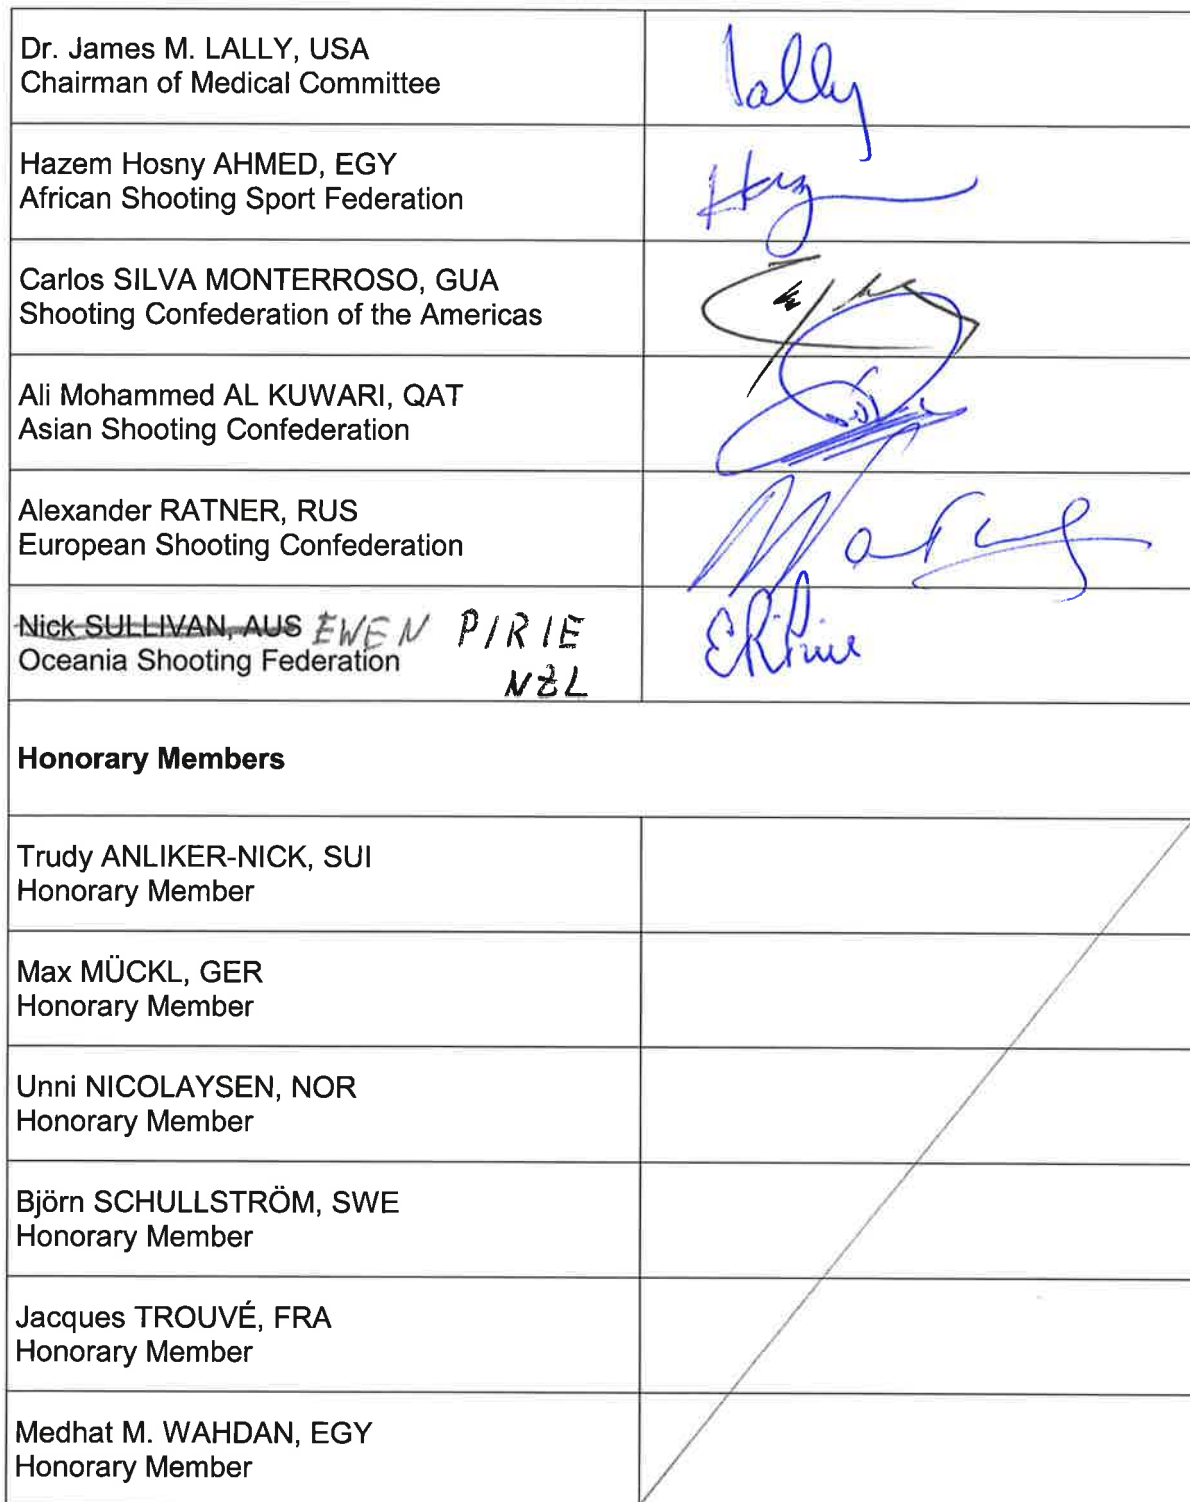 Dr. James M. LALLY, USA
Chairman of Medical Committee
Lally
Hazem Hosny AHMED, EGY
African Shooting Sport Federation
Carlos SILVA MONTERROSO, GUA
Shooting Confederation of the Americas
Ali Mohammed AL KUWARI, QAT
Asian Shooting Confederation
Alexander RATNER, RUS
European Shooting Confederation
Nick SULLIVAN, AUS EWEN PIRIE
Oceania Shooting Federation NZL
Honorary Members
Trudy ANLIKER-NICK, SUI
Honorary Member
Max MÜCKL, GER
Honorary Member
Unni NICOLAYSEN, NOR
Honorary Member
Björn SCHULLSTRÖM, SWE
Honorary Member
Jacques TROUVÉ, FRA
Honorary Member
Medhat M. WAHDAN, EGY
Honorary Member